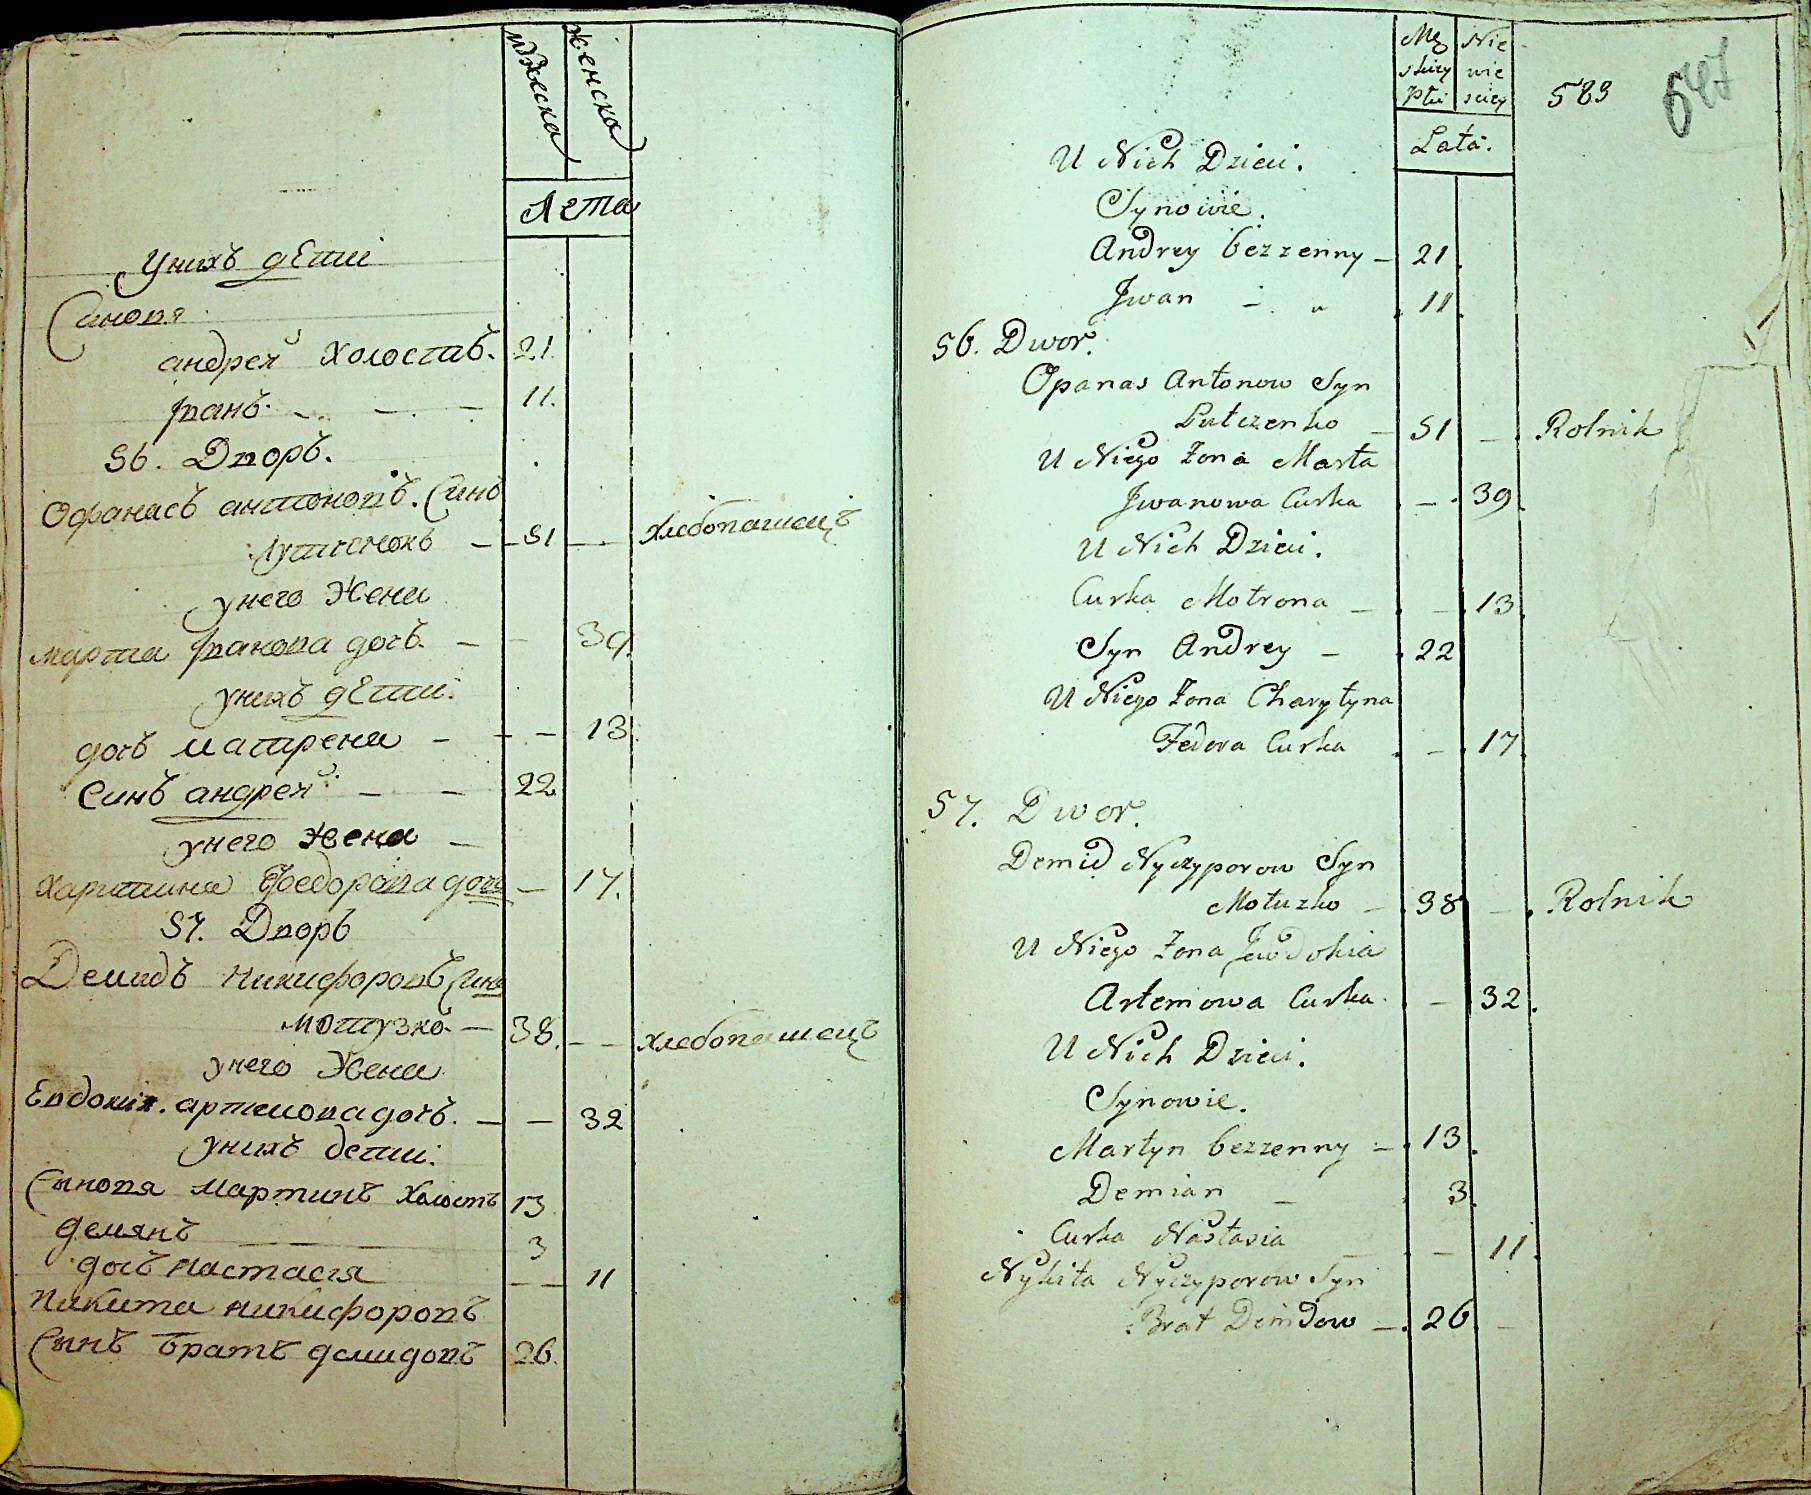 мужеска
женска
Лета
У нихъ дЕти
Синовя
андрей холоставъ. 21.
Іванъ. - - - 11.
56. Дворъ.
Офанасъ антоновъ. Синъ
Лутченокъ - 51 - хлебопашецъ
у него Жена
марта Іванова дочъ. - - 39.
у нихъ дЕти.
дочъ матрена - - - 13.
Синъ андрей - - 22
у него жена -
Харитина Федорова дочъ - 17.
57. Дворъ
Демидъ никифоровъ Синъ
мотузко. - 38. - - хлебопашецъ
у него Жена
Евдокия. артемова дочъ. - - 32
у нихъ дети.
Сыновя мартинъ холостъ 13
демянъ - - - 3
дочъ настасія - - 11
никита никифоровъ
Сынъ братъ демидовъ 26.
Mę
skiey
Płci
Nie
wie
sciey
583
647
Lata.
U Nich Dzieci.
Synowie.
Andrey bezzenny - 21.
Jwan - " 11.
56. Dwor.
Opanas Antonow Syn
Lutczenko - 51 - Rolnik
U Niego Zona Marta
Jwanowa Curka - 39.
U Nich Dzieci.
Curka Motrona - - 13.
Syn Andrey - 22
U Niego Zona Charytyna
Fedora Curka - 17.
57. Dwor.
Demid Nyczyporow Syn
Motuzko - 38 - Rolnik
U Niego Zona Jewdokia
Artemowa Curka. - 32.
U Nich Dzieci.
Synowie.
Martyn bezzenny - 13.
Demian - 3.
Curka Nastasia - - 11.
Nykita Nyczyporow Syn
Brat Demidow - 26. -